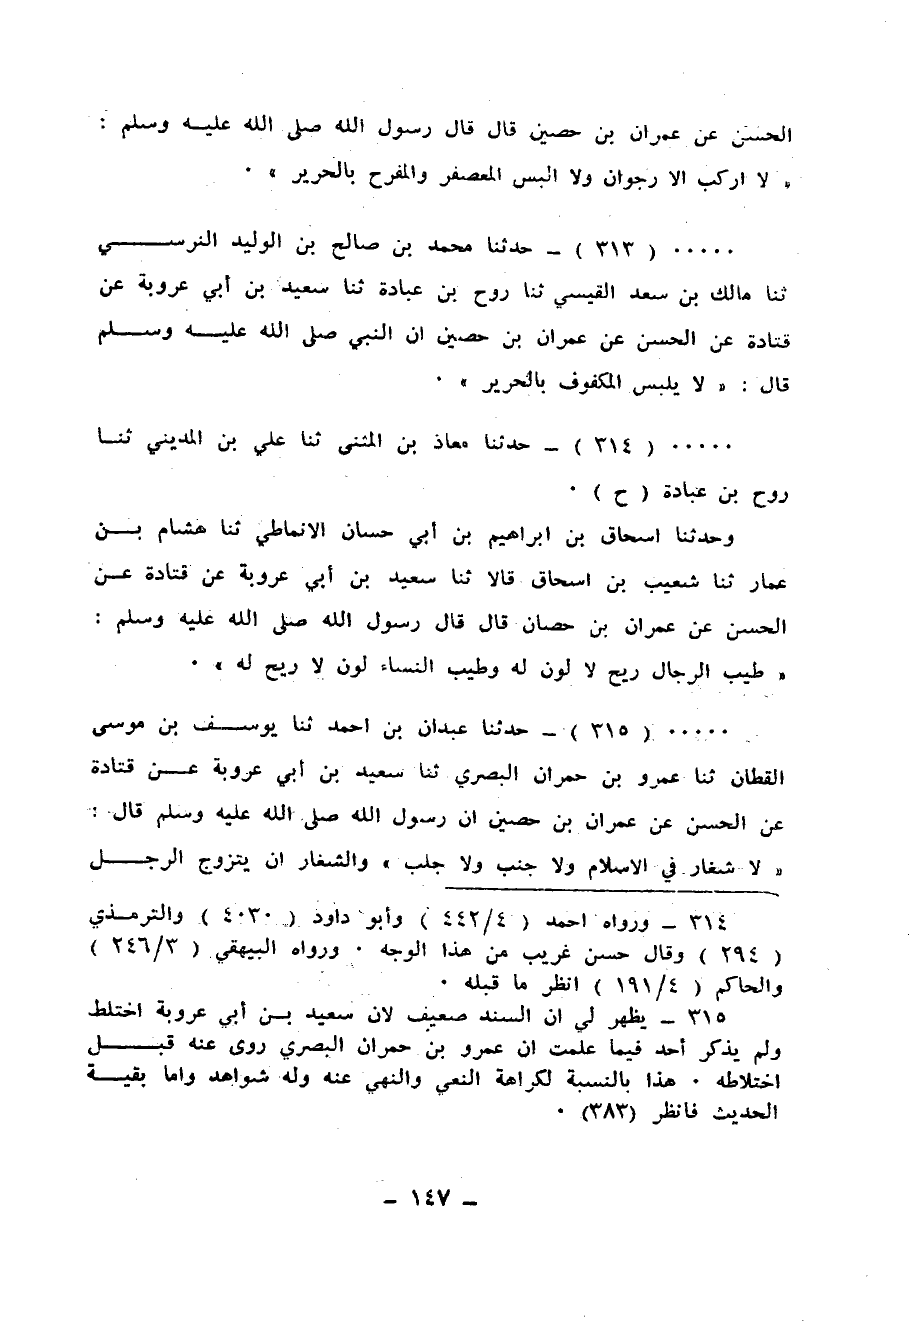 الحسن عن عمران بن حصين قال قال رسول الله صلى الله عليه وسلم :
« لا اركب الا رجوان ولا البس المعصفر والمفرح بالحرير » ٠
٠٠٠٠٠ ( ٣١٣ ) ـ حدثنا محمد بن صالح بن الوليد النرسي
ثنا مالك بن سعد القيسي ثنا روح بن عبادة ثنا سعيد بن أبي عروبة عن
قتادة عن الحسن عن عمران بن حصين ان النبي صلى الله عليه وسلم
قال : « لا يلبس المكفوف بالحرير » ٠
٠٠٠٠٠ ( ٣١٤ ) ـ حدثنا معاذ بن المثنى ثنا علي بن المديني ثنا
روح بن عبادة ( ح ) ٠
وحدثنا اسحاق بن ابراهيم بن أبي حسان الانماطي ثنا هشام بن
عمار ثنا شعيب بن اسحاق قالا ثنا سعيد بن أبي عروبة عن قتادة عن
الحسن عن عمران بن حصان قال قال رسول الله صلى الله عليه وسلم :
« طيب الرجال ريح لا لون له وطيب النساء لون لا ريح له » ٠
٠٠٠٠٠ ( ٣١٥ ) ـ حدثنا عبدان بن احمد ثنا يوسف بن موسى
القطان ثنا عمرو بن حمران البصري ثنا سعيد بن أبي عروبة عن قتادة
عن الحسن عن عمران بن حصين ان رسول الله صلى الله عليه وسلم قال :
« لا شغار في الاسلام ولا جنب ولا جلب » والشغار ان يتزوج الرجل
٣١٤ ـ ورواه احمد ( ٤٤٢/٤ ) وأبو داود ( ٤٠٣٠ ) والترمذي
( ٢٩٤ ) وقال حسن غريب من هذا الوجه ٠ ورواه البيهقي ( ٢٤٦/٣ )
والحاكم ( ١٩١/٤ ) انظر ما قبله ٠
٣١٥ ـ يظهر لي ان السند ضعيف لان سعيد بن أبي عروبة اختلط
ولم يذكر أحد فيما علمت ان عمرو بن حمران البصري روى عنه قبل
اختلاطه ٠ هذا بالنسبة لكراهة النعي والنهي عنه وله شواهد واما بقية
الحديث فانظر (٣٨٣) ٠
ـ ١٤٧ ـ